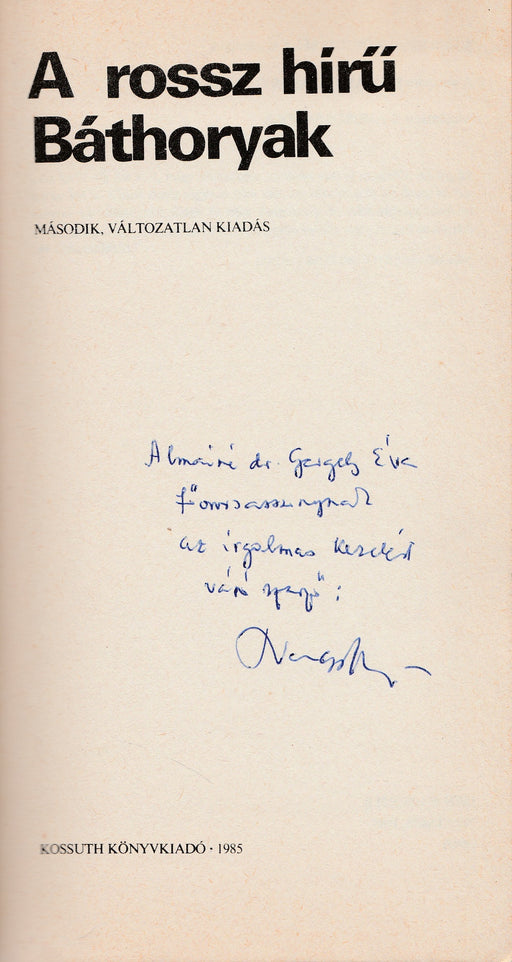 A rossz hírű
Báthoryak
MÁSODIK, VÁLTOZATLAN KIADÁS
Almáiné dr. Gergely Éva
Főorvosasszonynak
az irgalmas kezelést
váró szerző:
KOSSUTH KÖNYVKIADÓ · 1985